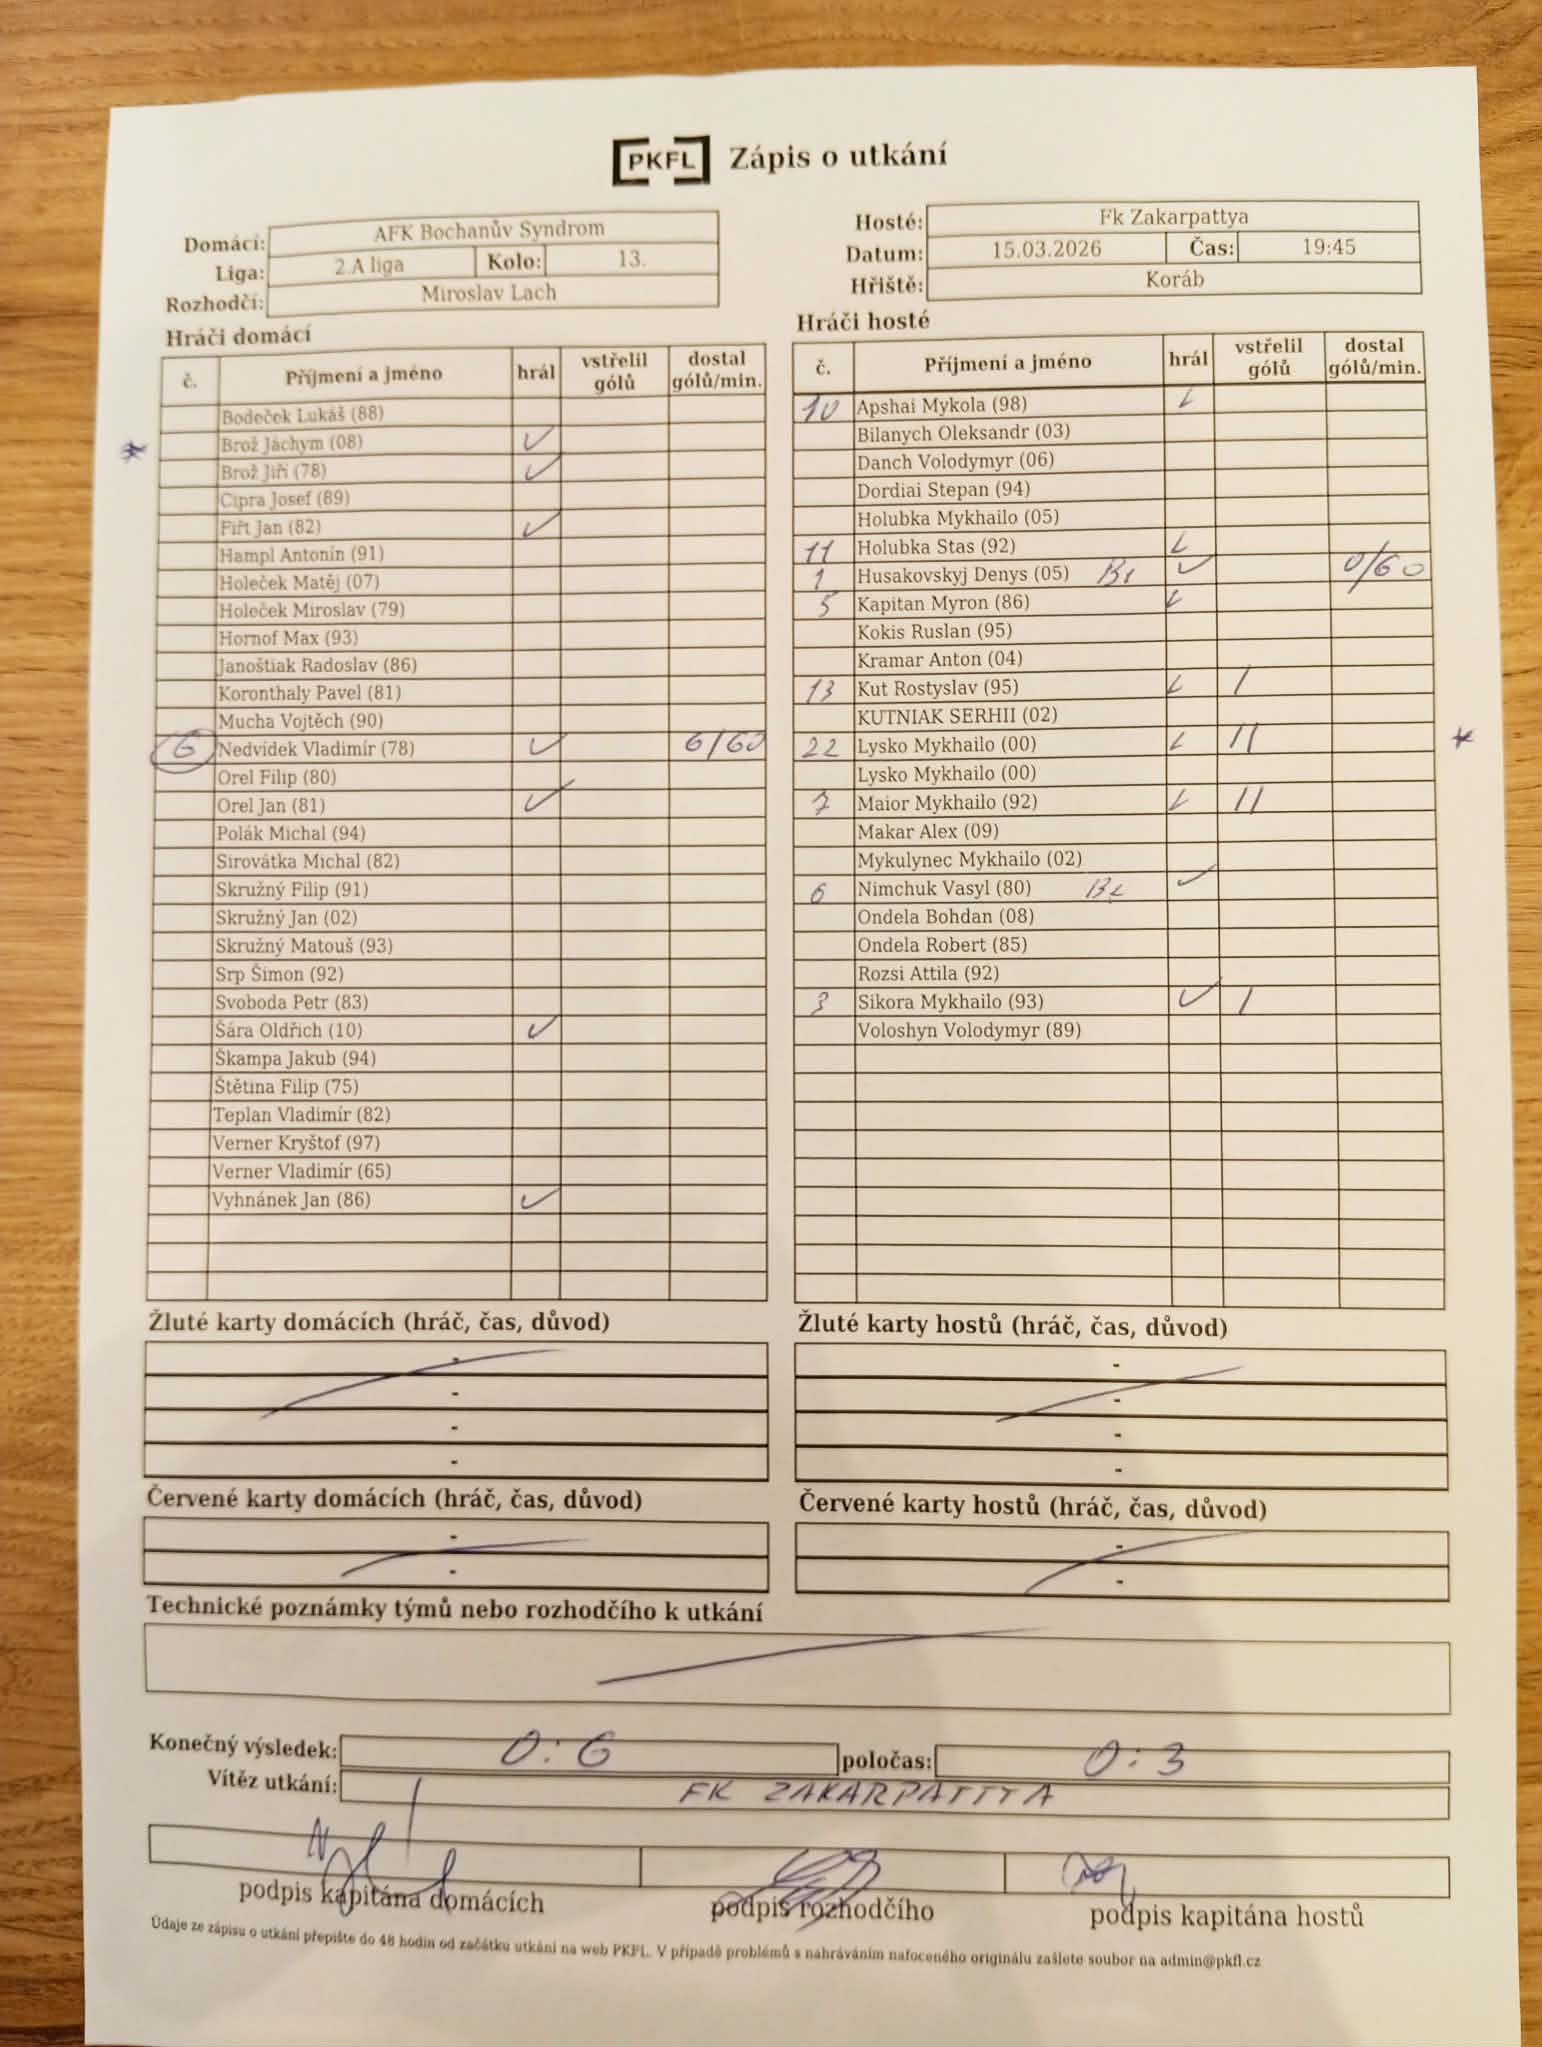 PKFL Zápis o utkání
Domácí: AFK Bochanův Syndrom
Liga: 2.A liga Kolo: 13.
Rozhodčí: Miroslav Lach
Hosté: Fk Zakarpattya
Datum: 15.03.2026 Čas: 19:45
Hřiště: Koráb
Hráči domácí
č. Příjmení a jméno hrál vstřelil gólů dostal gólů/min.
Bodeček Lukáš (88)
* Brož Jáchym (08) ✓
Brož Jiří (78) ✓
Cipra Josef (89)
Fiřt Jan (82) ✓
Hampl Antonín (91)
Holeček Matěj (07)
Holeček Miroslav (79)
Hornof Max (93)
Janoštiak Radoslav (86)
Koronthaly Pavel (81)
Mucha Vojtěch (90)
6 Nedvídek Vladimír (78) ✓ 6/60
Orel Filip (80)
Orel Jan (81) ✓
Polák Michal (94)
Sirovátka Michal (82)
Skružný Filip (91)
Skružný Jan (02)
Skružný Matouš (93)
Srp Šimon (92)
Svoboda Petr (83)
Šára Oldřich (10) ✓
Škampa Jakub (94)
Štětina Filip (75)
Teplan Vladimír (82)
Verner Kryštof (97)
Verner Vladimír (65)
Vyhnánek Jan (86) ✓
Hráči hosté
č. Příjmení a jméno hrál vstřelil gólů dostal gólů/min.
10 Apshai Mykola (98) ✓
Bilanych Oleksandr (03)
Danch Volodymyr (06)
Dordiai Stepan (94)
Holubka Mykhailo (05)
11 Holubka Stas (92) ✓
1 Husakovskyj Denys (05) ✓ 0/60
5 Kapitan Myron (86) ✓
Kokis Ruslan (95)
Kramar Anton (04)
13 Kut Rostyslav (95) ✓ /
KUTNIAK SERHII (02)
22 Lysko Mykhailo (00) ✓ // *
Lysko Mykhailo (00)
7 Maior Mykhailo (92) ✓ //
Makar Alex (09)
Mykulynec Mykhailo (02)
6 Nimchuk Vasyl (80) ✓
Ondela Bohdan (08)
Ondela Robert (85)
Rozsi Attila (92)
3 Sikora Mykhailo (93) ✓ /
Voloshyn Volodymyr (89)
Žluté karty domácích (hráč, čas, důvod)
-
-
-
-
Žluté karty hostů (hráč, čas, důvod)
-
-
-
-
Červené karty domácích (hráč, čas, důvod)
-
-
Červené karty hostů (hráč, čas, důvod)
-
-
Technické poznámky týmů nebo rozhodčího k utkání
Konečný výsledek: 0:6 poločas: 0:3
Vítěz utkání: FK ZAKARPATTYA
podpis kapitána domácích podpis rozhodčího podpis kapitána hostů
Údaje ze zápisu o utkání přepište do 48 hodin od začátku utkání na web PKFL. V případě problémů s nahráváním nafoceného originálu zašlete soubor na admin@pkfl.cz